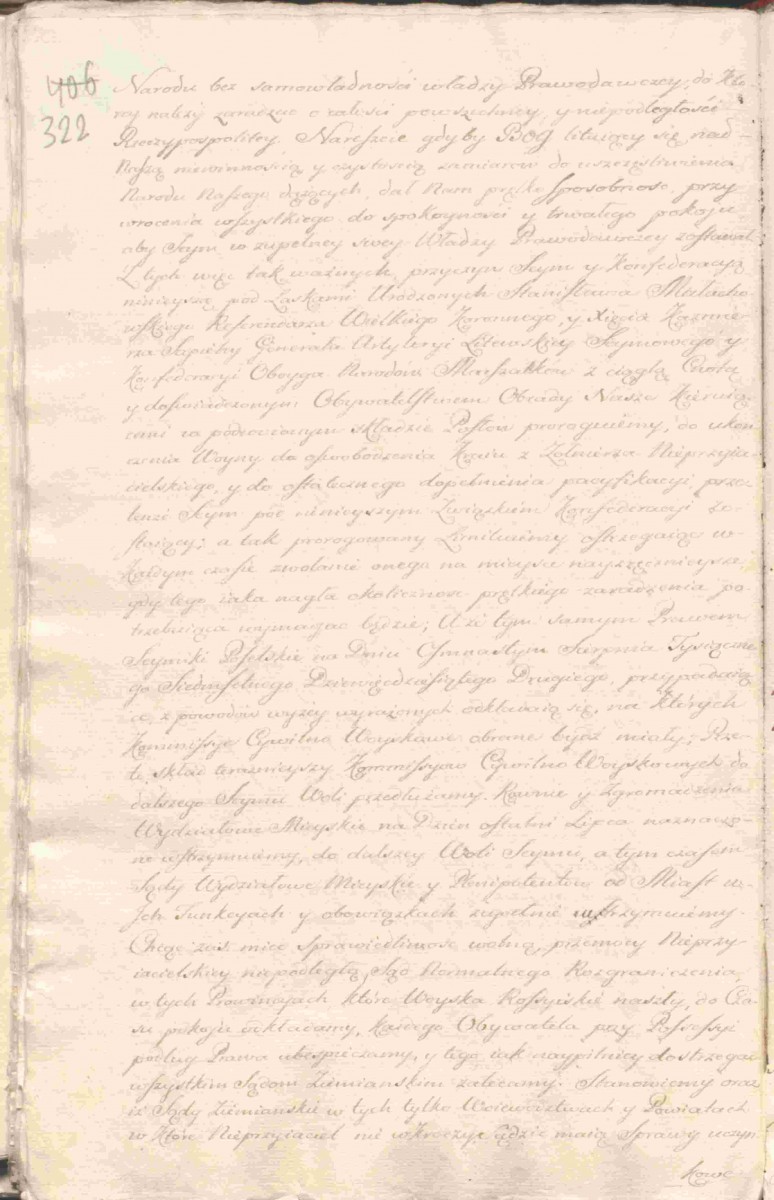 406
322
Narodu bez samowładności władzy Prawodawczey, do Któ-
rey należy zaradzać o całości powszechney, y niepodległości
Rzeczypospolitey. Nareszcie gdyby BOG lituiący się nad
Naszą niewinnością y czystością zamiarow do uszczęśliwienia
Narodu Naszego dążących, dał Nam prętko sposobnosc, przy
wrocenia wszystkiego do spokoyności y trwałego pokoju
aby Seym w zupełney swey Władzy Prawodawczey zostawał
Z tych więc tak ważnych przyczyn Seym y Konfederacyą
ninieyszą pod Laskami Urodzonych Stanisława Małacho-
wskiego Referendarza Wielkiego Koronnego, y Xięcia Kazimie-
rza Sapiehy Generała Artyleryi Litewskiey Seymowego y
Konfederacyi Oboyga Narodów Marszałków z ciągłą Cnotą
y doświadczonym Obywatelstwem Obrady Nasze Kieruią-
cemi w podwoionym składzie Posłow prorogujemy, do ukoń-
czenia Woyny do oswobodzenia Kraiu z Żołnierza Nieprzyia-
cielskiego, y do ostatecznego dopełnienia pacyfikacyi przez
tenże Seym pod ninieyszym Związkiem Konfederacyi zo-
staiący; a tak prorogowany Limituiemy ostrzegaiąc w
Każdym czasie zwołanie onego na mieysce naybespiecznieysze
gdy tego iaka nagła okoliczność prętkiego zaradzenia po-
trzebuiąca wymagać będzie; A że tym samym Prawem
Seymiki Poselskie na Dniu Osmnastym Sierpnia Tysiączne-
go Siedmsetnego Dziewięćdziesiątego Drugiego, przypadaią
ce, z powodów wyżey wyrażonych odkładaią się, na Których
Kommissye Cywilno Woyskowe obrane bydź miały; Prze-
to skład teraznieyszy Kommissyow Cywilno Woyskowych do
dalszego Seymu Woli przedłużamy. Rownie y Zgromadzenia
Wydziałowe Mieyskie na Dzien ostatni Lipca naznaczo-
ne wstrzymuiemy, do dalszey Woli Seymu, a tym czasem
Sądy Wydziałowe Mieyskie y Plenipotentów od Miast w
Jch Funkcyach y obowiązkach zupełnie utrzymuiemy.
Chcąc zaś miec Sprawiedliwość wolną, przemocy Nieprzy-
iacielskiey niepodległą, Sąd Normalnego Rozgraniczenia,
w tych Prowincyach które Woyska Rossyiskie naszły, do Cza-
su pokoju odkładamy, Każdego Obywatela przy Possessyi
podług Prawa ubespieczamy, y tego iak naypilniey dostrzegać
wszystkim Sądom Ziemianskim zalecamy. Stanowiemy oraz
iż Sądy Ziemianskie w tych tylko Woiewodztwach y Powiatach
w Które Nieprzyiaciel nie wkroczył sądzić maią Sprawy uczyn-
kowe